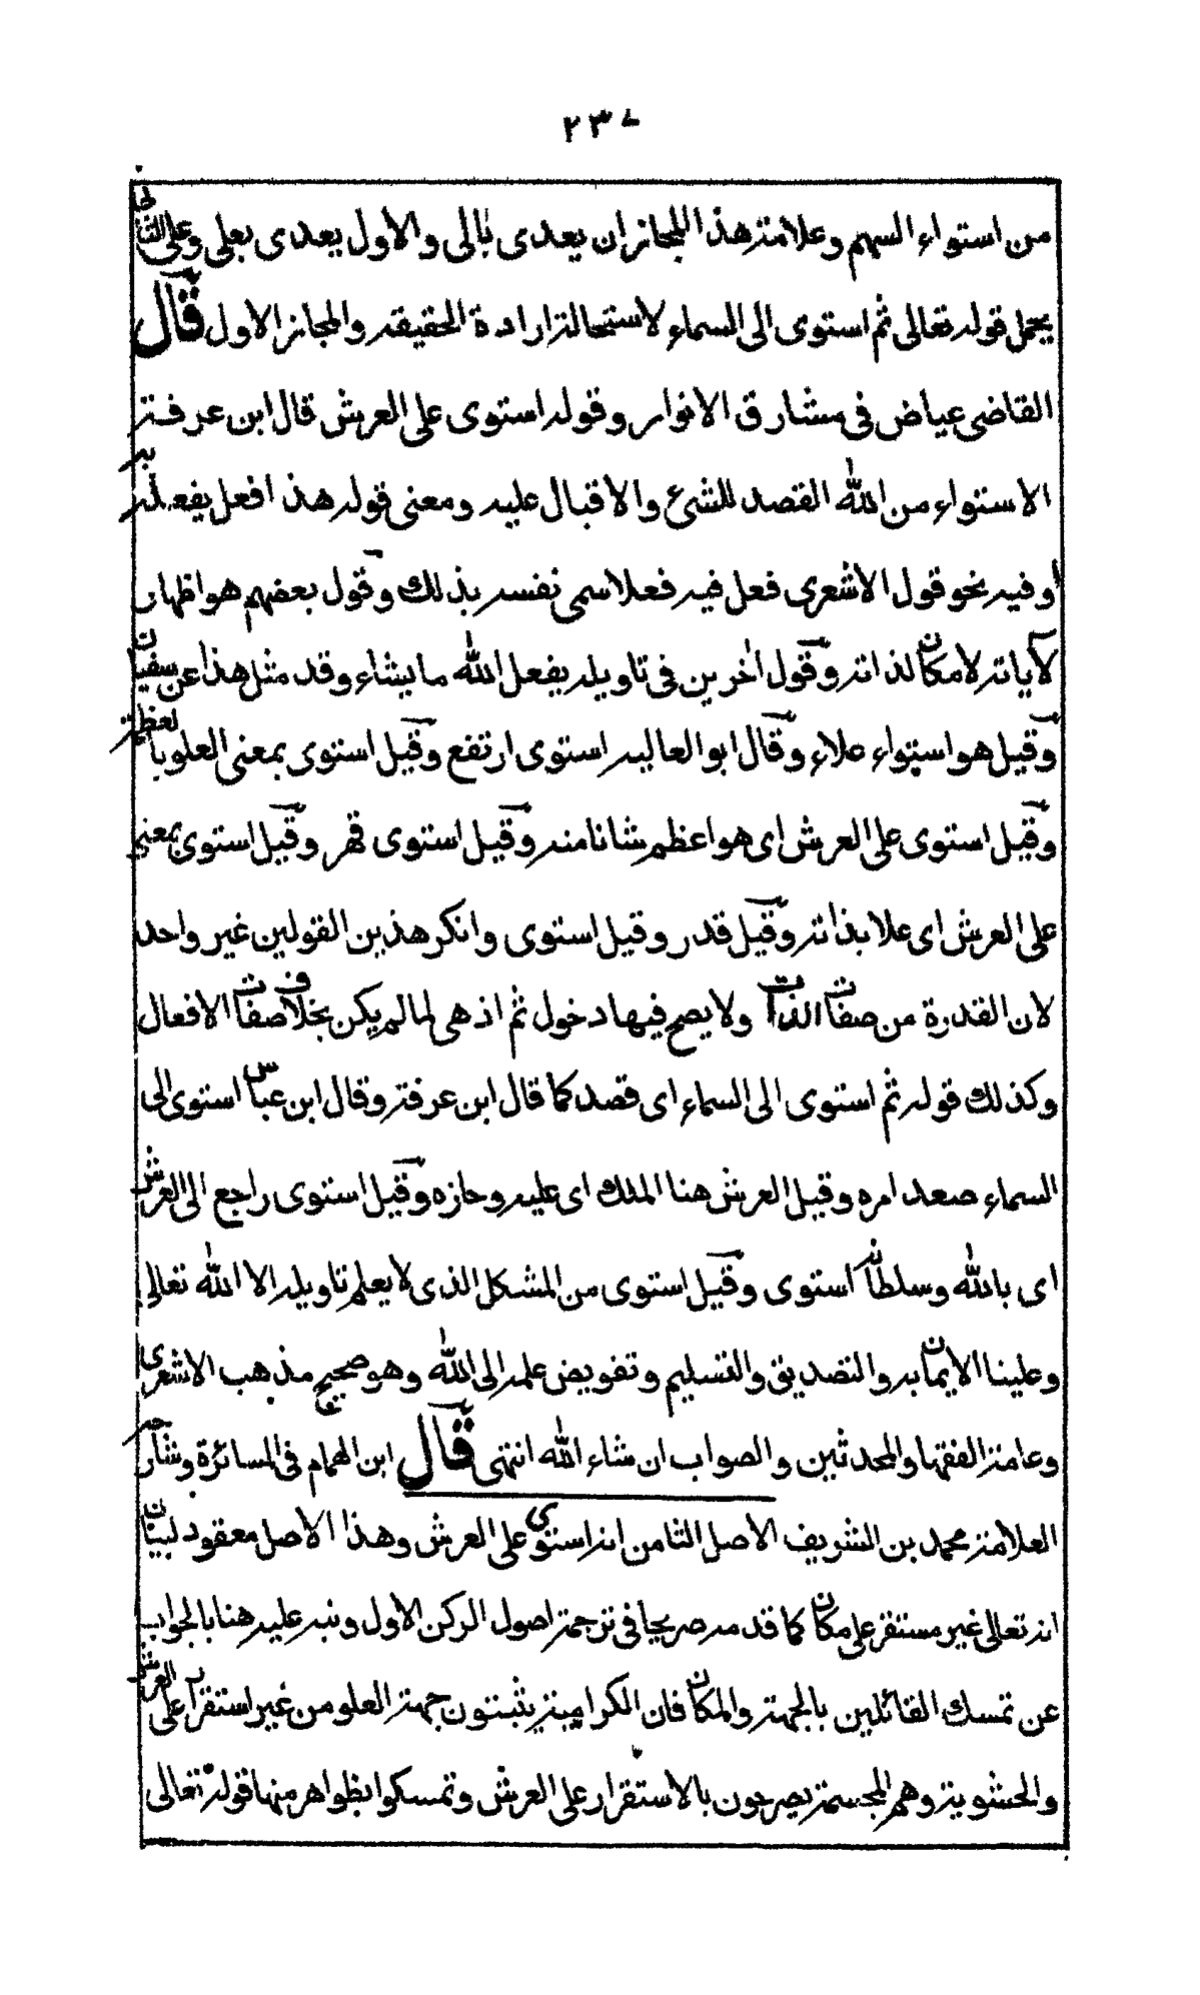 ٢٣٧
من استواء السهم وعلامة هذا المجاز ان يعدى بالى والاول يعدى بعلى وعلى الثانى
يحمل قوله تعالى ثم استوى الى السماء لاستحالة ارادة الحقيقه والمجاز الاول قال
القاضى عياض فى مشارق الانوار وقوله استوى على العرش قال ابن عرفة
الاستواء من الله القصد للشئ والاقبال عليه ومعنى قوله هذا افعل يفعله به
اوفيه نحو قول الاشعرى فعل فيه فعلا سمى نفسه بذلك وقول بعضهم هو اظهار
لآياته لا مكان لذاته وقول اخرين فى تاويله يفعل الله ما يشاء وقد مثل هذا عن سفيان
وقيل هو استواء علاء وقال ابو العاليه استوى ارتفع وقيل استوى بمعنى العلو بالعظمة
وقيل استوى على العرش اى هو اعظم شانا منه وقيل استوى قهر وقيل استوى بمعنى
على العرش اى علا بذاته وقيل قدر وقيل استوى وانكر هذين القولين غير واحد
لان القدرة من صفات الذات ولا يصح فيها دخول ثم اذ هى لما لم يكن بخلاف صفات الافعال
وكذلك قوله ثم استوى الى السماء اى قصد كما قال ابن عرفة وقال ابن عباس استوى الى
السماء صعد امره وقيل العرش هنا الملك اى عليه وحازه وقيل استوى راجع الى العرش
اى بالله وسلطانه استوى وقيل استوى من المشكل الذى لا يعلم تاويله الا الله تعالى
وعلينا الايمان به والتصديق والتسليم وتفويض علمه الى الله وهو صحيح مذهب الاشعرى
وعامة الفقها والمحدثين والصواب ان شاء الله انتهى قال ابن الهمام فى المسائرة وشارحه
العلامة محمد بن الشريف الاصل الثامن انه استوى على العرش وهذا الاصل معقود لبيان
انه تعالى غير مستقر على مكان كما قدمه صريحا فى ترجمة اصول الركن الاول ونبه عليه هنا بالجواب
عن تمسك القائلين بالجهة والمكان فان الكرامية يثبتون جهة العلو من غير استقرار على العرش
والحشوية وهم المجسمة يصرحون بالاستقرار على العرش وتمسكوا بظواهر منها قوله تعالى